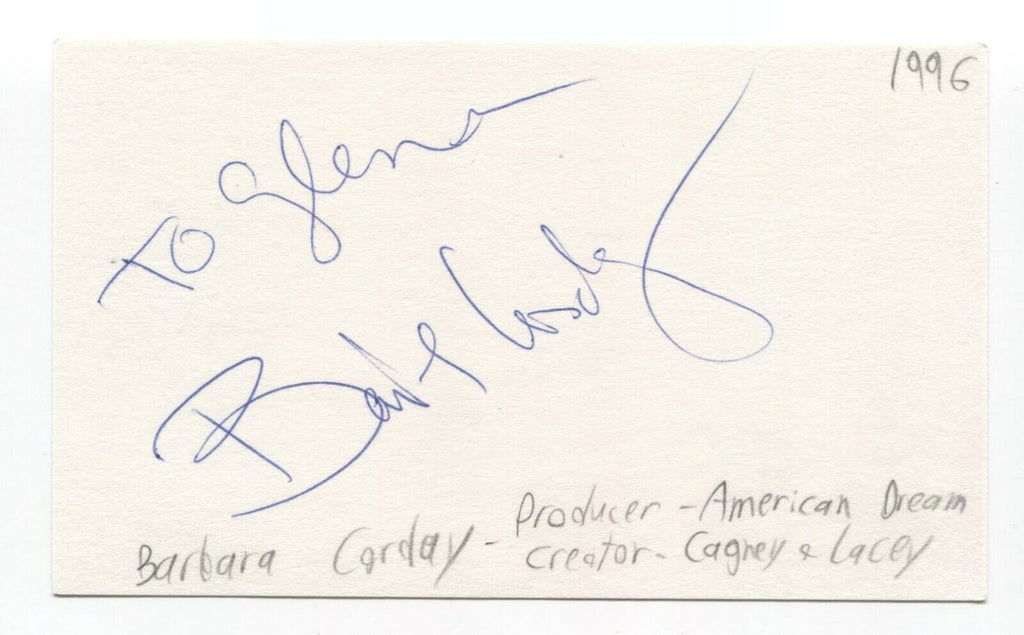 1996
To Glenn
Barb Corday
Producer - American Dream
Barbara Corday - creator - Cagney & Lacey